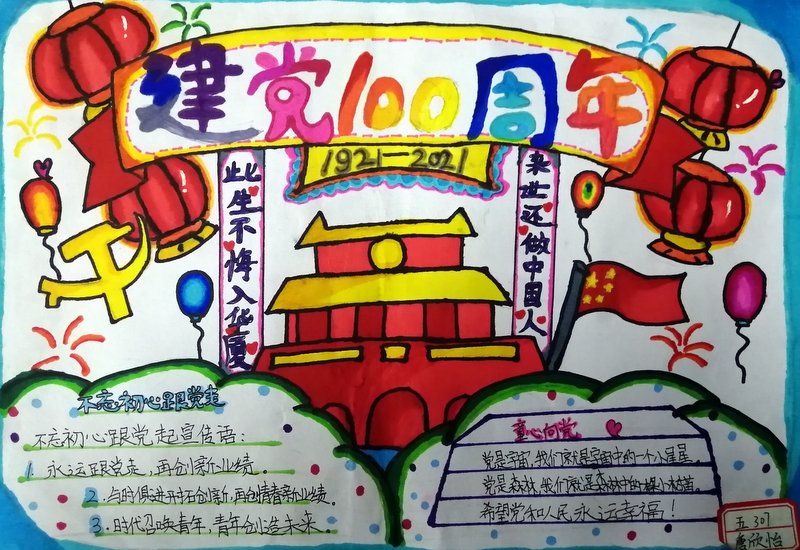 建党100周年
1921—2021
此生不悔入华夏
来世还做中国人
不忘初心跟党走
不忘初心跟党起宣传语:
1. 永远跟党走,再创新业绩.
2. 与时俱进 创新,再创 青春新业绩.
3. 时代召唤青年,青年创造未来.
童心向党
党是宇宙,我们就是宇宙中的一个小星星
党是森林,我们就是森林中的一棵小树苗.
希望党和人民永远幸福!
五301
欣怡